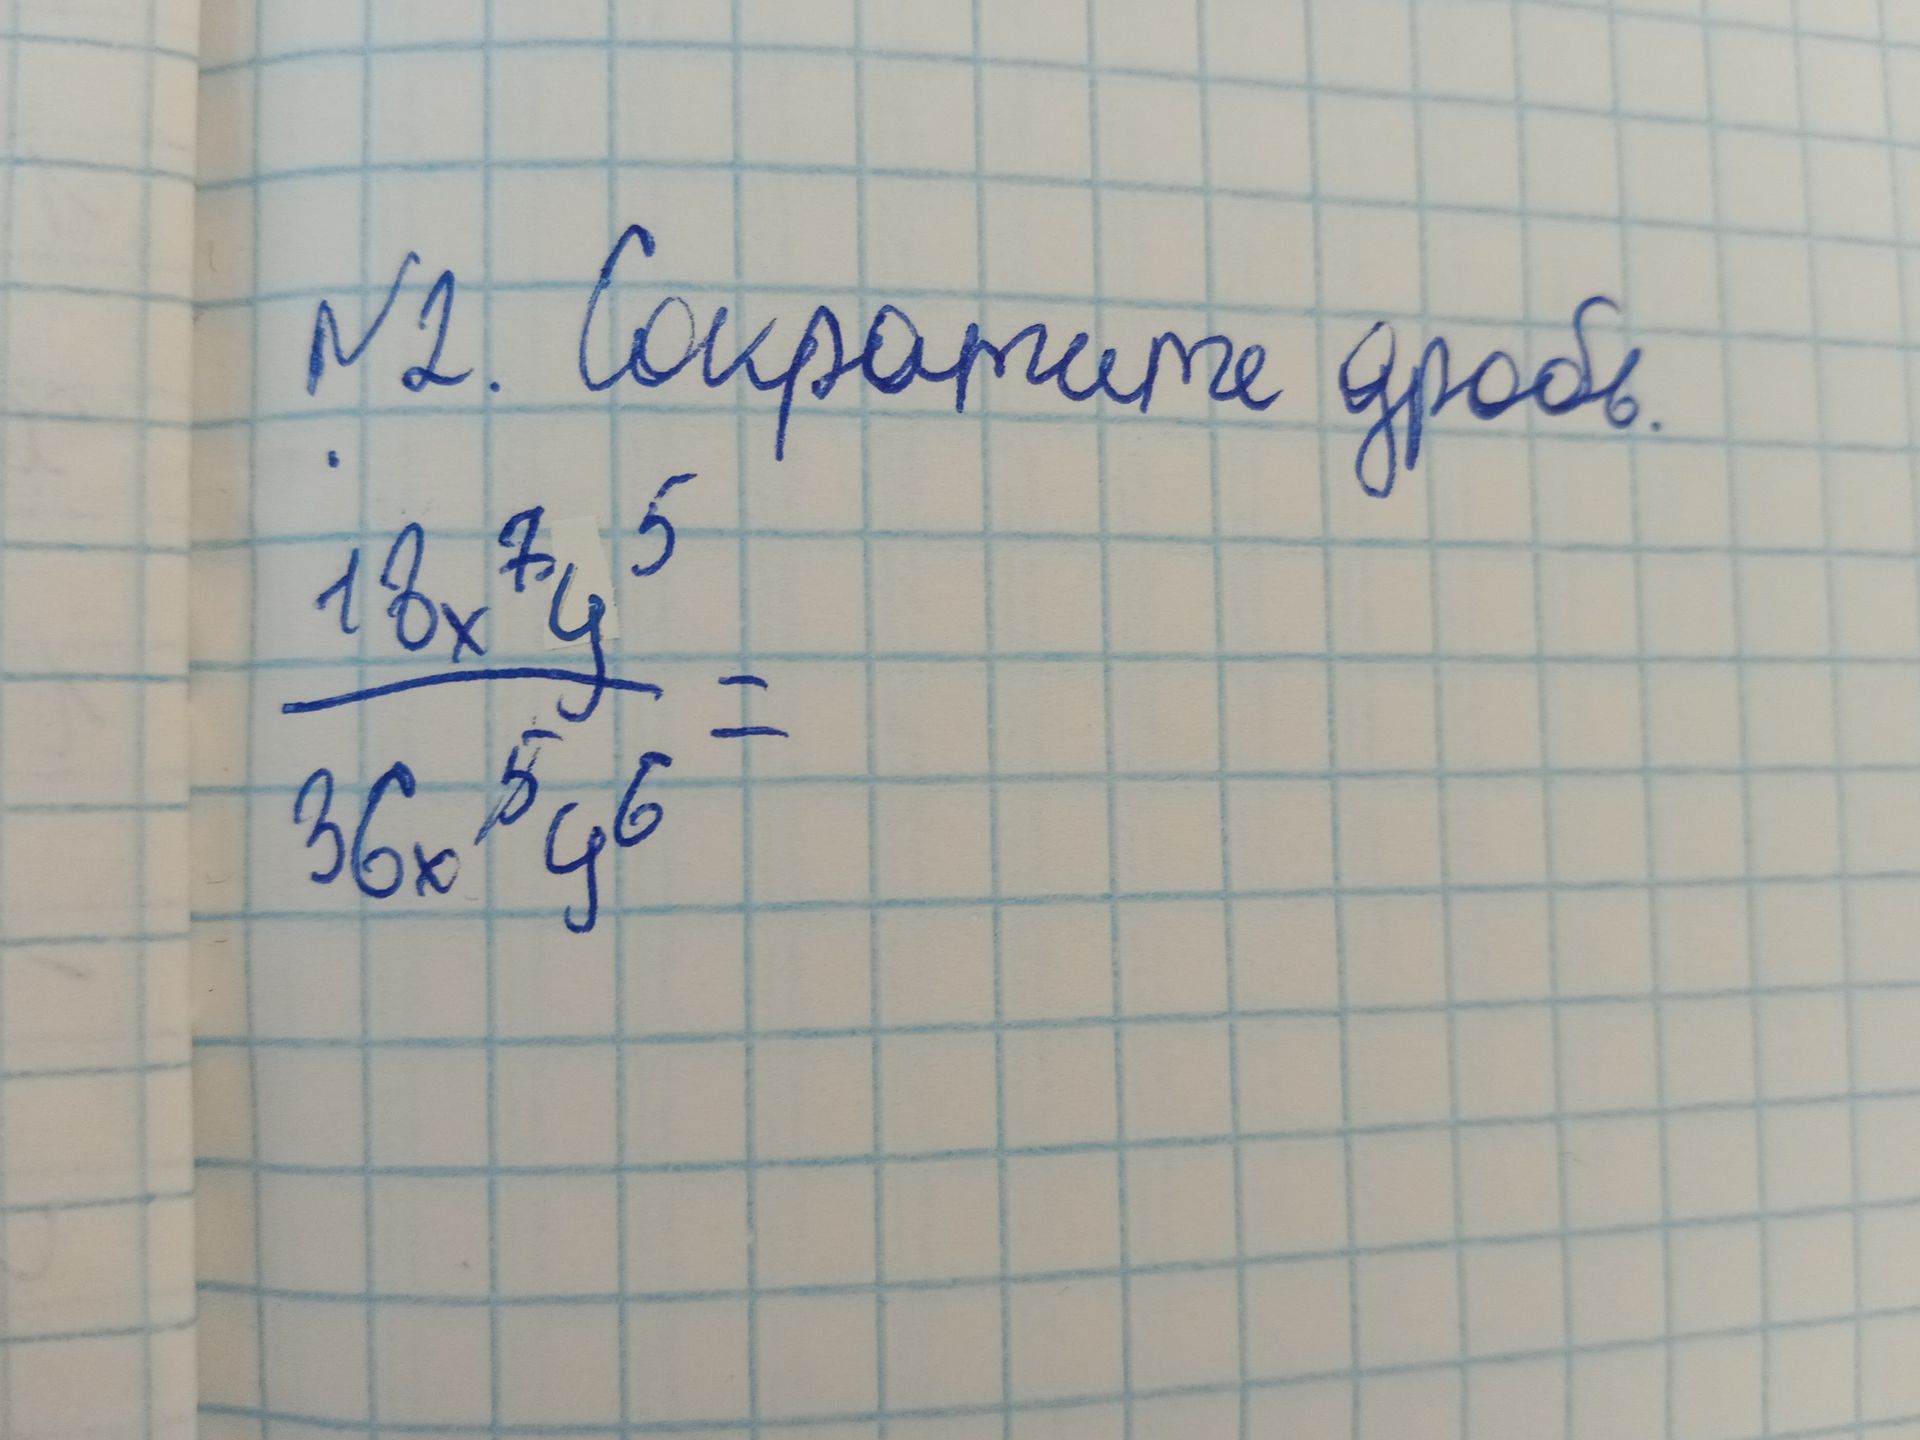 №2. Сократите дробь.
18x⁷y⁵
36x⁵y⁶ =